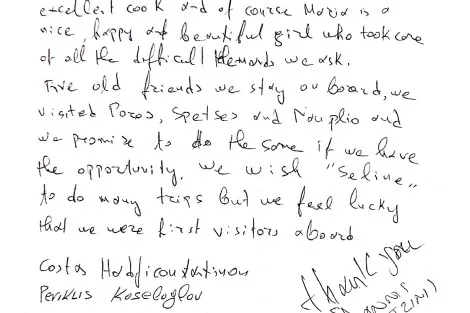 excellent cook and of course Maria is a
nice, happy and beautiful girl who took care
of all the difficult demands we ask.
Five old friends we stay on board, we
visited Poros, Spetses and Nauplio and
we promise to do the same if we have
the opportunity. We wish "Seline"
to do many trips but we feel lucky
that we were first visitors aboard
Costas Hadjiconstantinou
Periklis Koseloglou
thank you